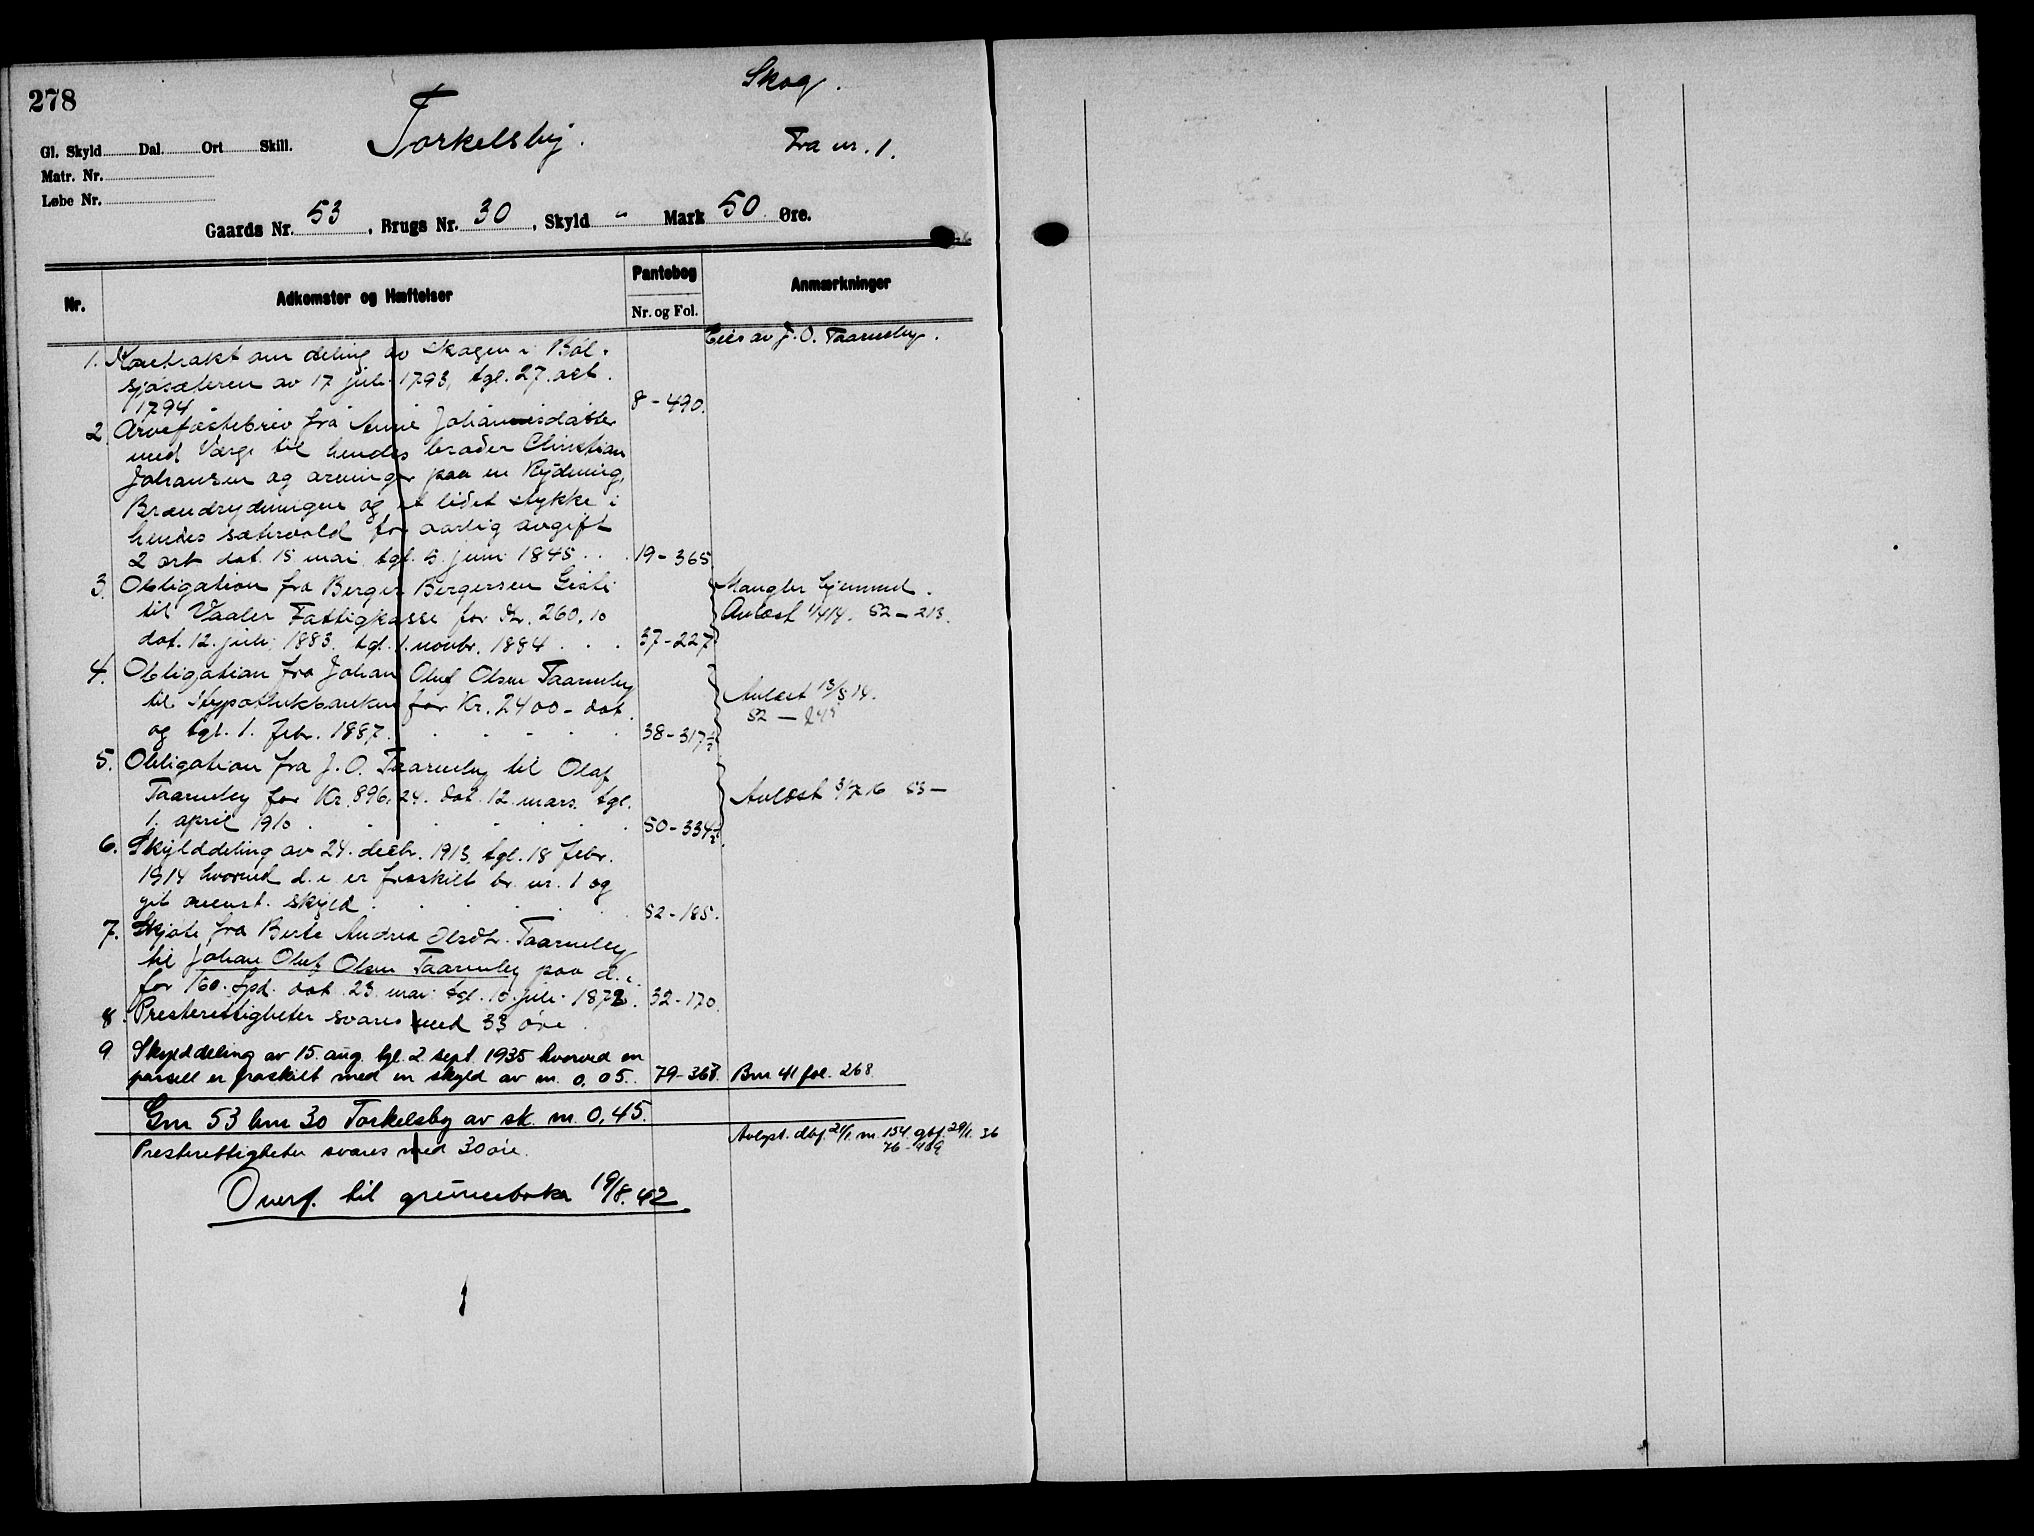 278
Skog.
Torkelsby.
Fra nr. 1.
Gl. Skyld Dal. Ort Skill.
Matr. Nr.
Løbe Nr.
Gaards Nr. 53, Brugs Nr. 30, Skyld " Mark 50 Øre.
Nr. Adkomster og Hæftelser Pantebog Nr. og Fol. Anmærkninger
Eies av J. O. Taarneby.
1. Kontrakt om deling av skogen i Böl-
sjösæteren av 17 juli 1793, tgl. 27. okt.
1794 8-490.
2 Arvefæstebrev fra Anne Johannesdatter
med Værge til hendes broder Christian
Johansen og arvinger paa en Rydning,
Brændrydningen og et lidet stykke i
hendes sætervold for aarlig avgift
2 ort dat. 15 mai tgl. 5 juni 1845 . . 19-365
3. Obligation fra Berger Bergersen
til Vaaler Fattigkasse for Kr. 260,10
dat. 12. juli 1883. tgl. 1. novbr. 1884 . . . 37-227
Mangler hjemmel.
Avlæst 1/4 14. 52-213.
4. Obligation fra Johan Oluf Olsen Taarneby
til Hypothekbanken for Kr. 2400- dat.
og tgl. 1. febr. 1887. . . . . . 38-317½
Avlæst 13/8 14.
52-
5. Obligation fra J. O. Taarneby til Olaf
Taarneby for Kr. 896,24. dat. 12. mars. tgl.
1. april 1910 . . . . . . 50-334½.
Avlæst 3/7 16 53-
6. Skylddeling av 24. decbr. 1913, tgl. 18 febr.
1914 hvorved d. e. er fraskilt br. nr. 1 og
git ovenst. skyld . . . . . 52-185.
7. Skjøte fra Berte Andrea Olsdtr. Taarneby
til Johan Oluf Olsen Taarneby paa d. e.
for 160. Spd. dat. 23. mai tgl. 10. juli 1872. 32-170.
8. Presterettigheter svares med 33 øre.
9 Skylddeling av 15. aug. tgl. 2. sept. 1935 hvorved en
parsell er fraskilt med en skyld av m. 0,05. 79-368. Bnr 41 fol. 268.
Gnr 53 bnr 30 Torkelsby av sk. m. 0,45.
Presterettigheter svares med 30 øre.
Avlyst. dbf. 21/1. nr. 154. gbf. 29/1. 36
76-409
Overf. til grunnboka 19/8. 42